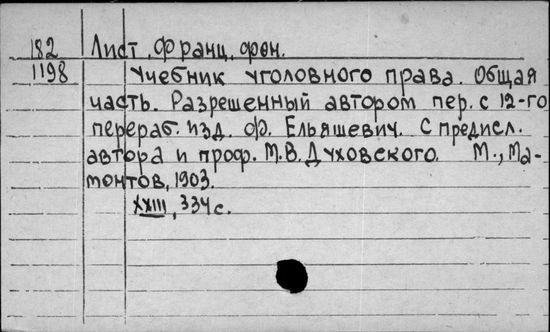 182 Лист, Франц, фон.
1198 Учебник уголовного права. Общая
часть. Разрешенный автором пер. с 12-го
перераб. изд. Ф. Ельяшевич. С предисл.
автора и проф. М.В. Духовского. М., Ма-
монтов, 1903.
XXIII, 334 с.